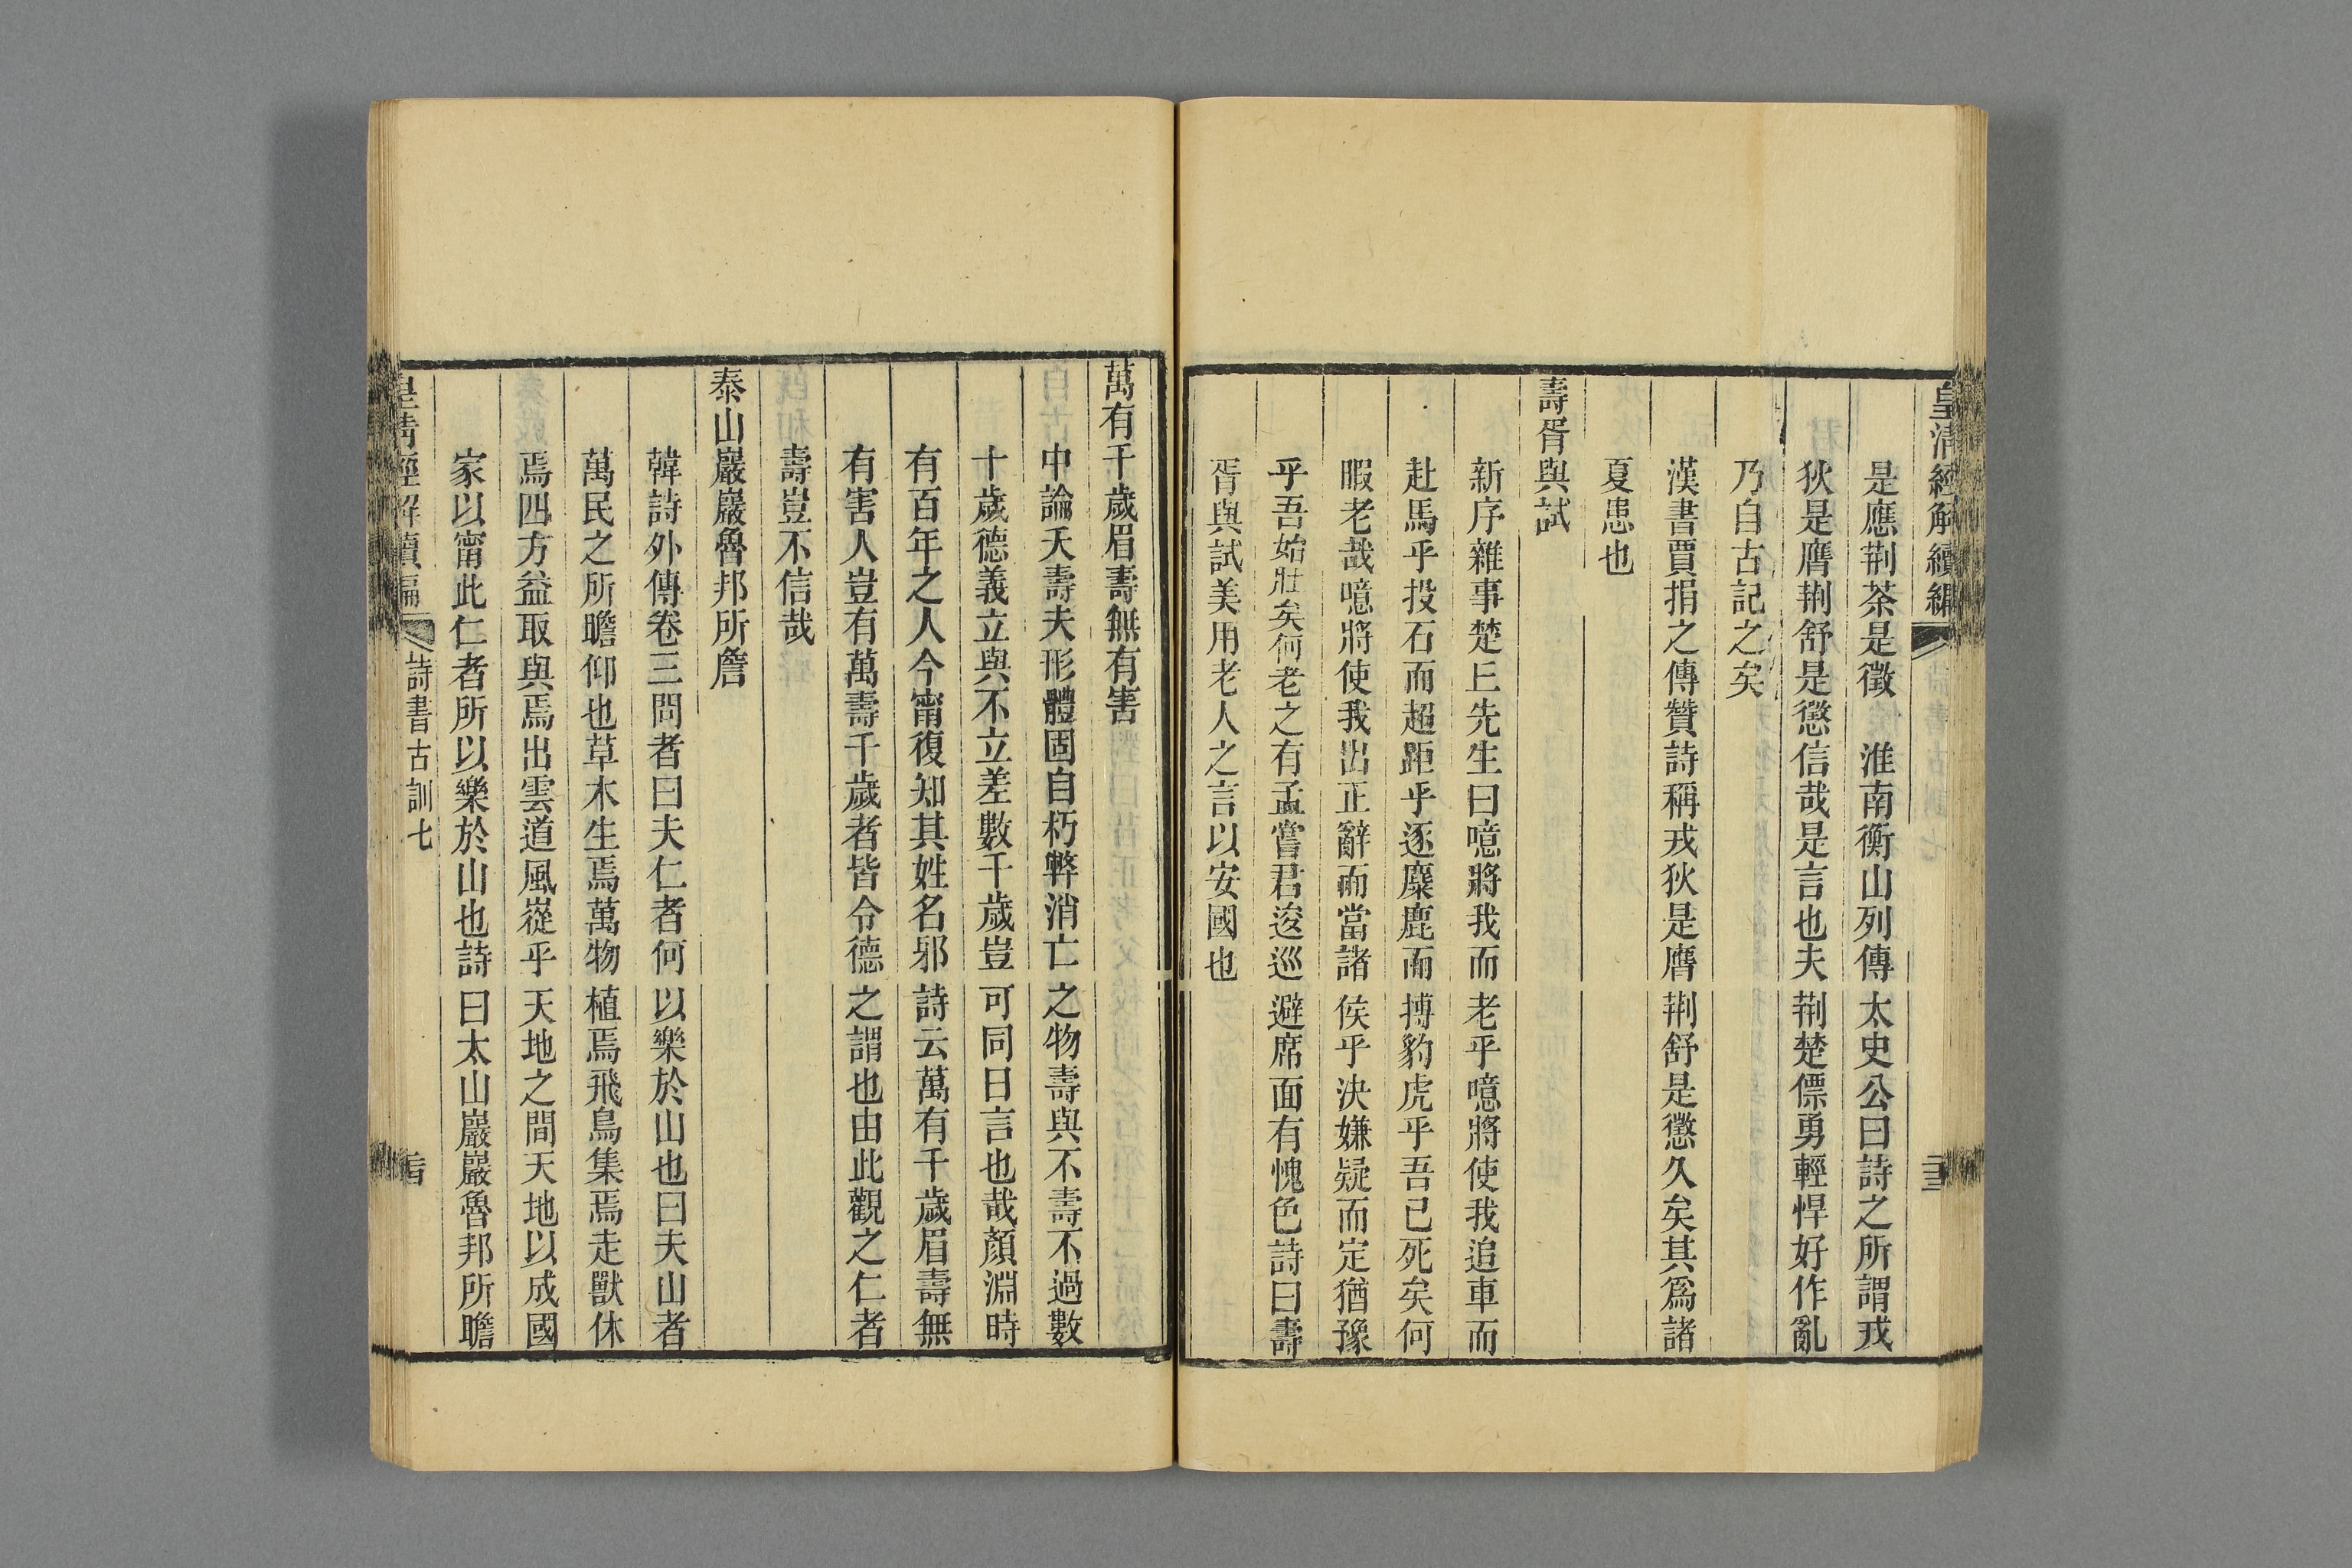 皇清經解續編
是應荆荼是徵　淮南衡山列傳太史公曰詩之所謂戎
狄是膺荆舒是懲信哉是言也夫荆楚僄勇輕悍好作亂
乃自古記之矣
漢書賈捐之傳贊詩稱戎狄是膺荆舒是懲久矣其爲諸
夏患也
壽胥與試
新序雜事楚丘先生曰噫將我而老乎噫將使我追車而
赴馬乎投石而超距乎逐麋鹿而搏豹虎乎吾已死矣何
暇老哉噫將使我出正辭而當諸侯乎決嫌疑而定猶豫
乎吾始壯矣何老之有孟嘗君逡巡避席面有愧色詩曰壽
胥與試美用老人之言以安國也
萬有千歲眉壽無有害
中論夭壽夫形體固自朽弊消亡之物壽與不壽不過數
十歲德義立與不立差數千歲豈可同日言也哉顏淵時
有百年之人今甯復知其姓名邪詩云萬有千歲眉壽無
有害人豈有萬壽千歲者皆令德之謂也由此觀之仁者
壽豈不信哉
泰山巖巖魯邦所詹
韓詩外傳卷三問者曰夫仁者何以樂於山也曰夫山者
萬民之所瞻仰也草木生焉萬物植焉飛鳥集焉走獸休
焉四方益取與焉出雲道風嵸乎天地之間天地以成國
家以甯此仁者所以樂於山也詩曰太山巖巖魯邦所瞻
皇清經解續編
詩書古訓七